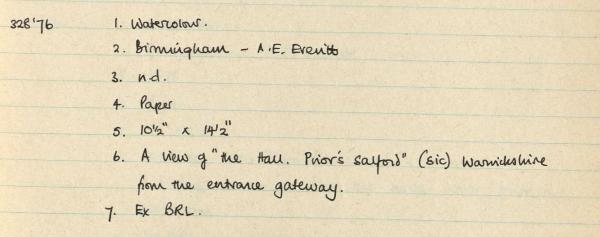 328'76 1. Watercolour.
2. Birmingham - A.E. Everitt
3. n.d.
4. Paper
5. 10½" x 14½"
6. A view of "the Hall. Prior's Salford" (sic) Warwickshire
from the entrance gateway.
7. Ex BRL.